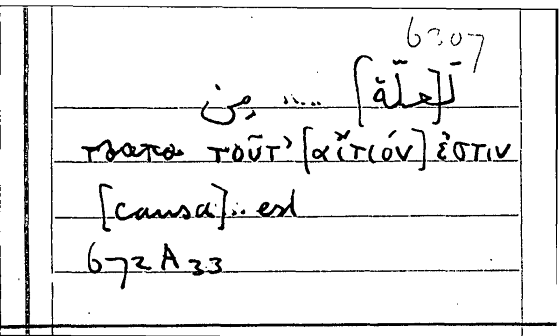 6307
لـ[علّة] ..... مِن
τοῦτ' [αἴτιόν] ἐστιν
[causa].. est
672A33